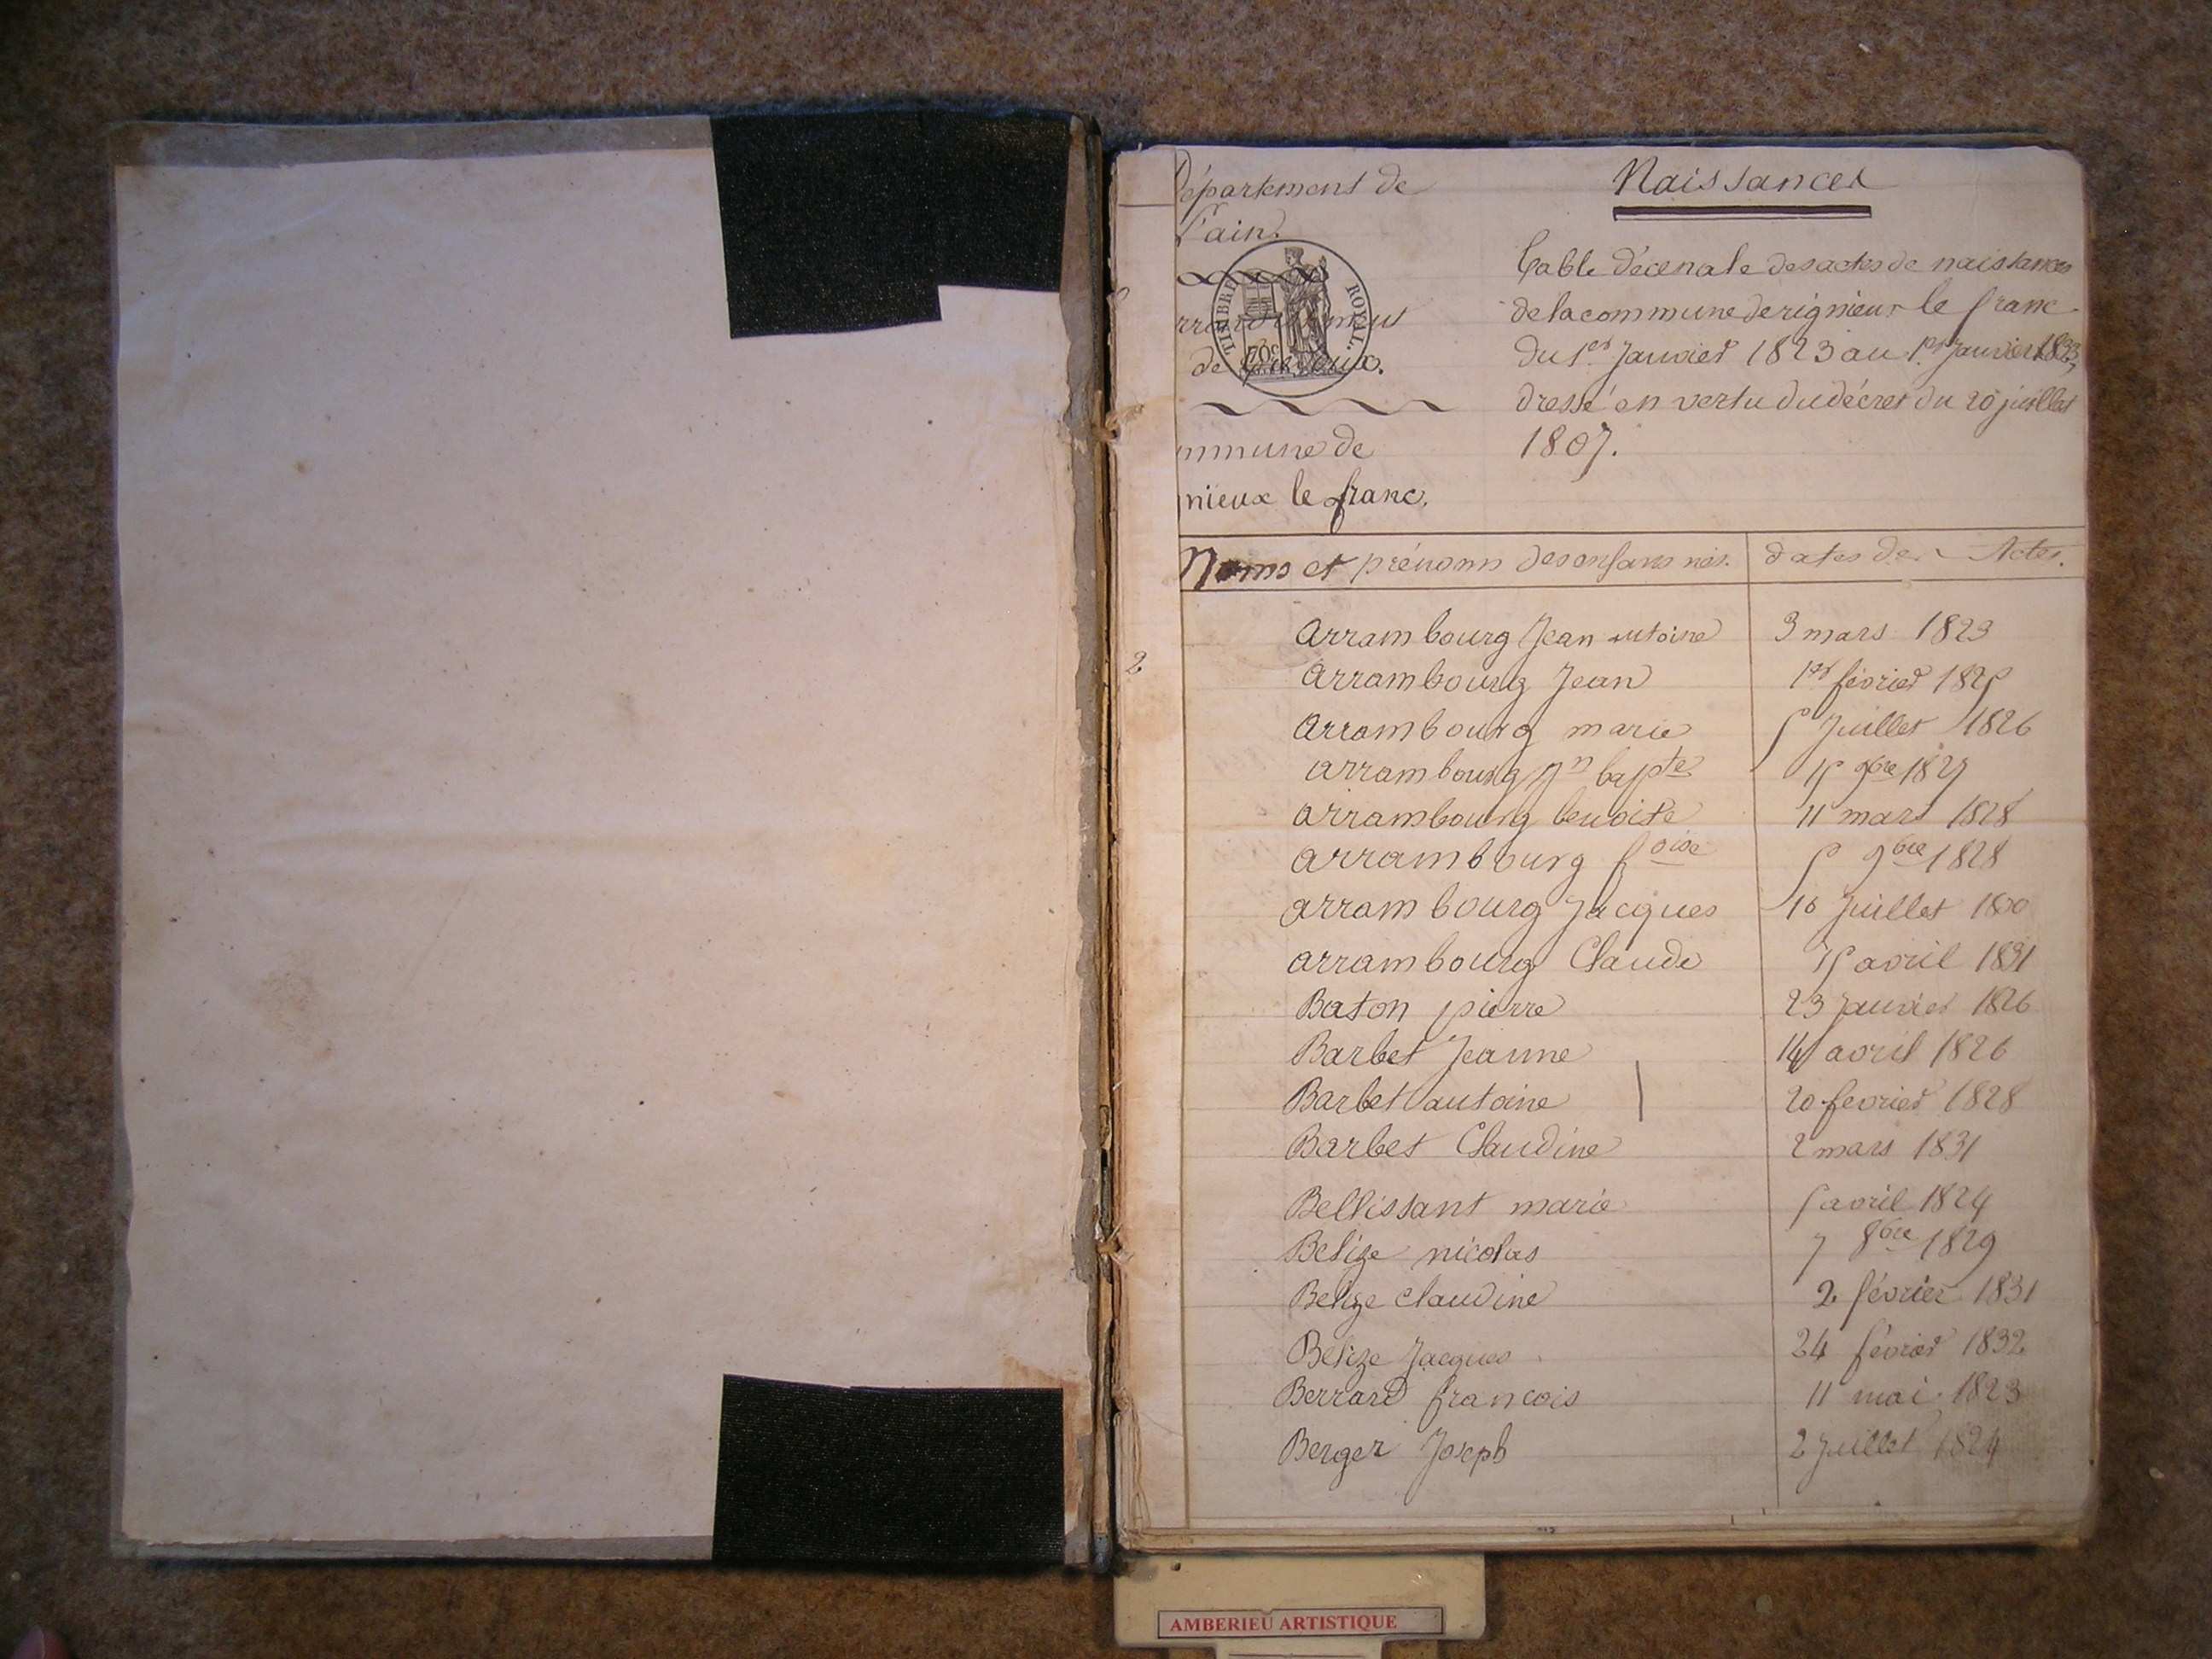 Département de
l'ain.
TIMBRE ROYAL.
de
mmune de
nieux le franc.
Naissances
Table décenale des actes de naissances
de la commune de rignieux le franc
du 1er Janvier 1823 au 1er Janvier 1833,
dressé en vertu du décret du 20 juillet
1807.
Noms et prénoms des enfans nés. dates des Actes.
2
arrambourg Jean antoine 3 mars 1823
arrambourg Jean 1er février 1825
arrambourg marie 5 Juillet 1826
arrambourg Jn bapte 15 9bre 1827
arrambourg benoite 11 mars 1828
arrambourg foise 5 9bre 1828
arrambourg Jacques Juillet 1830
arrambourg Claude 15 avril 1831
Baton pierre 23 Janvier 1826
Barbet Jeanne 14 avril 1826
Barbet antoine 20 fevrier 1828
Barbet Claudine 2 mars 1831
Bellissant marie 5 avril 1824
Belize nicolas 7 8bre 1829
Belize claudine 2 février 1831
Belize Jacques 24 février 1832
Berrard francois 11 mai 1823
Berger Joseph 2 Juillet 1824
AMBERIEU ARTISTIQUE